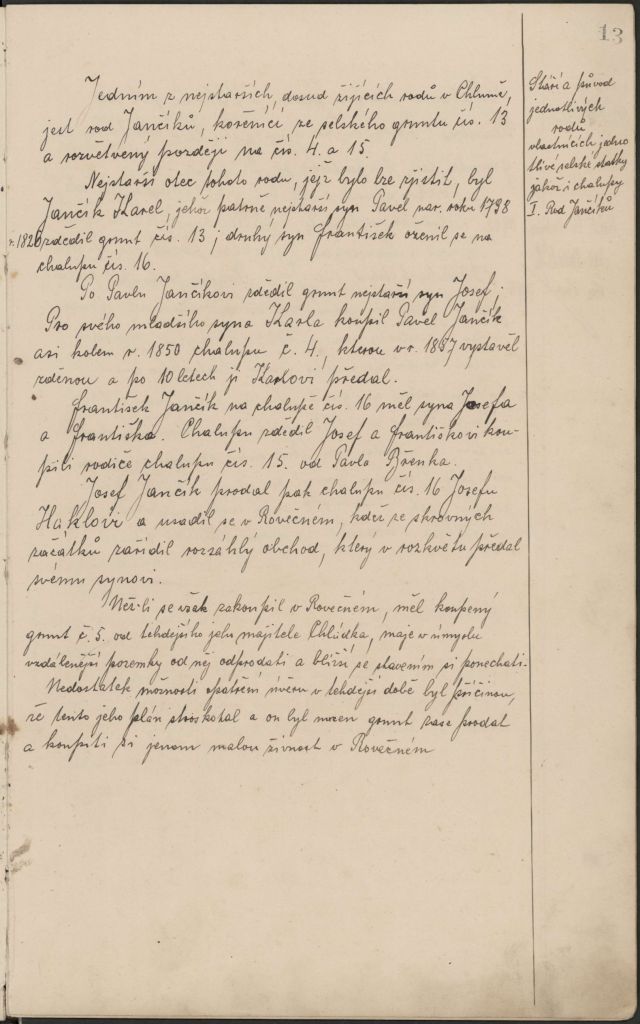 13
Jedním z nejstarších, dosud žijících rodů v Chlumě,
jest rod Jančíků, kořenící ze selského gruntu čís. 13
a rozvětvený později na čís. 4. a 15.
Nejstarší otec tohoto rodu, jejž bylo lze zjistiti, byl
Jančík Karel, jehož patrně nejstarší syn Pavel nar. roku 1798
r. 1820 zdědil grunt čís. 13 a druhý syn František oženil se na
chalupu čís. 16.
Po Pavlu Jančíkovi zdědil grunt nejstarší syn Josef.
Pro svého mladšího syna Karla koupil Pavel Jančík
asi kolem r. 1850 chalupu č. 4., kterou v r. 1857 vystavěl
zděnou a po 10 letech ji Karlovi předal.
František Jančík na chalupě čís. 16 měl syna Josefa
a Františka. Chalupu zdědil Josef a Františkovi kou-
pili rodiče chalupu čís. 15. od Pavla Břenka.
Josef Jančík prodal pak chalupu čís. 16 Josefu
Haklovi a usadil se v Rovečném, kdež ze skrovných
začátků zařídil rozsáhlý obchod, který v rozkvětu předal
svému synovi.
Než-li se však zakoupil v Rovečném, měl koupený
grunt č. 5. od tehdejšího jeho majitele Chládka, maje v úmyslu
vzdálenější pozemky od něj odprodati a bližší se stavením si ponechati.
Nedostatek možnosti opatření úvěru v tehdejší době byl příčinou,
že tento jeho plán stroskotal a on byl nucen grunt zase prodat
a koupiti si jenom malou živnost v Rovečném
Stáří a původ
jednotlivých
rodů
vlastnících jedno
tlivé selské statky
jakož i chalupy
I. Rod Jančíků